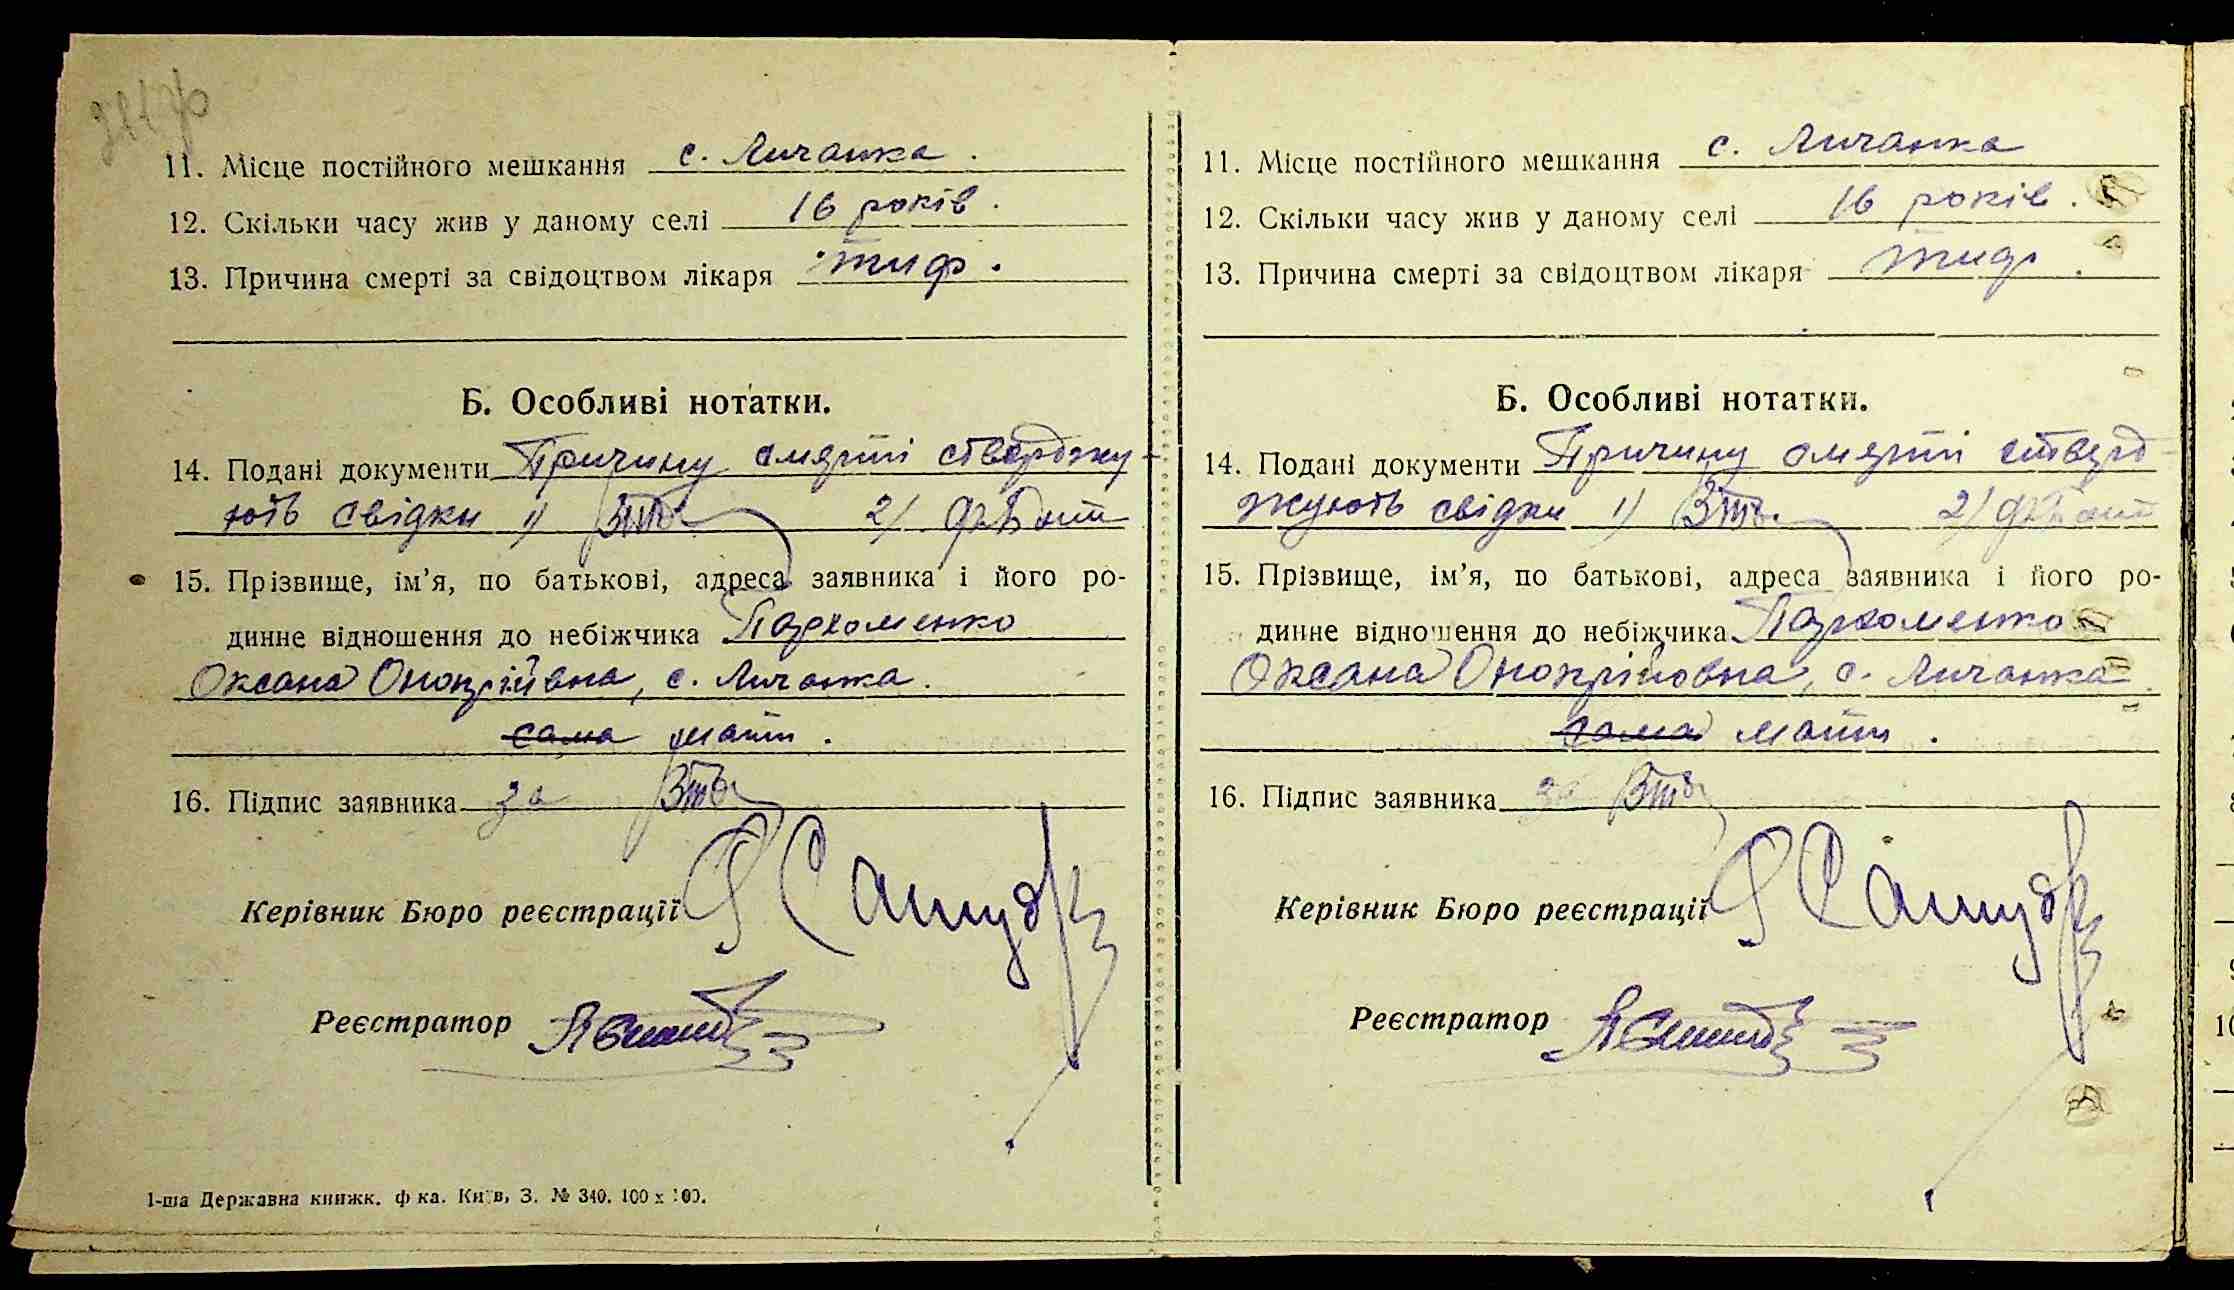 11. Місце постійного мешкання с. Личанка.
12. Скільки часу жив у даному селі 16 років.
13. Причина смерті за свідоцтвом лікаря тиф.
Б. Особливі нотатки.
14. Подані документи Причину смерті стверджу-
ють свідки 1) 2)
15. Прізвище, ім’я, по батькові, адреса заявника і його ро-
динне відношення до небіжчика Пархоменко
Оксана Оно­прійвна, с. Личанка.
сама мати.
16. Підпис заявника за
Керівник Бюро реєстрації
Реєстратор
1-ша Державна книжк. ф-ка. Київ, З. № 340. 100 x 100.
11. Місце постійного мешкання с. Личанка
12. Скільки часу жив у даному селі 16 років.
13. Причина смерті за свідоцтвом лікаря тиф.
Б. Особливі нотатки.
14. Подані документи Причину смерті стверд-
жують свідки 1) 2)
15. Прізвище, ім’я, по батькові, адреса заявника і його ро-
динне відношення до небіжчика Пархоменко
Оксана Онопрійовна, с. Личанка.
сама мати.
16. Підпис заявника за
Керівник Бюро реєстрації
Реєстратор